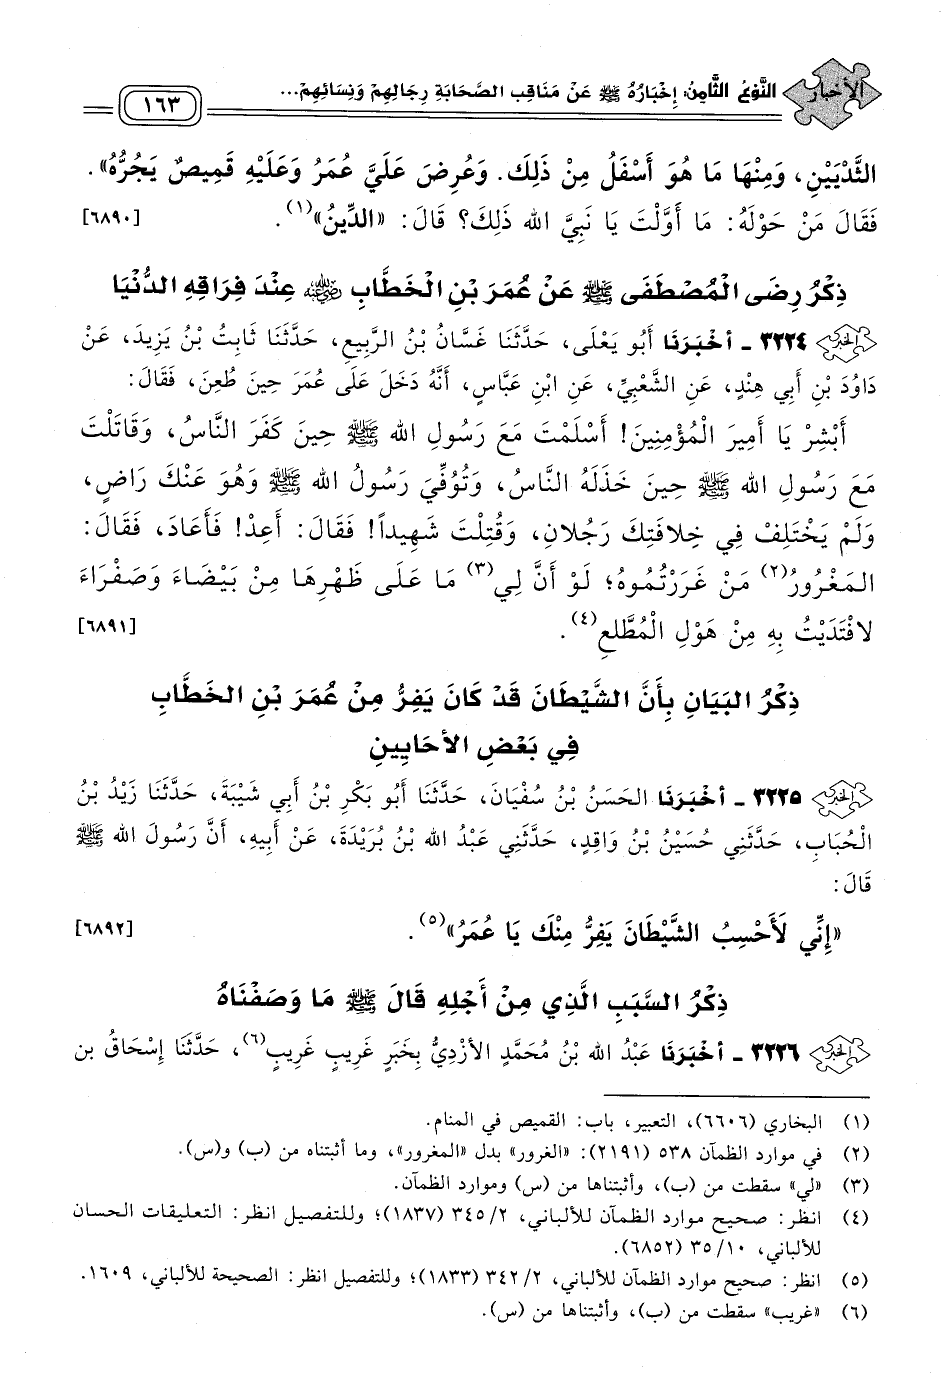 الأخبار النَّوْعُ الثَّامِنُ: إِخْبَارُهُ ﷺ عَنْ مَنَاقِبِ الصَّحَابَةِ رِجَالِهِمْ وَنِسَائِهِمْ... ١٦٣
الثَّدْيَيْنِ، وَمِنْهَا مَا هُوَ أَسْفَلُ مِنْ ذَلِكَ. وَعُرِضَ عَلَيَّ عُمَرُ وَعَلَيْهِ قَمِيصٌ يَجُرُّهُ».
فَقَالَ مَنْ حَوْلَهُ: مَا أَوَّلْتَ يَا نَبِيَّ الله ذَلِكَ؟ قَالَ: «الدِّينُ»(١). [٦٨٩٠]
ذِكْرُ رِضَى الْمُصْطَفَى ﷺ عَنْ عُمَرَ بْنِ الْخَطَّابِ رضي الله عنه عِنْدَ فِرَاقِهِ الدُّنْيَا
الخبر ٣٢٢٤ ـ أخْبَرَنَا أَبُو يَعْلَى، حَدَّثَنَا غَسَّانُ بْنُ الرَّبِيعِ، حَدَّثَنَا ثَابِتُ بْنُ يَزِيدَ، عَنْ
دَاوُدَ بْنِ أَبِي هِنْدٍ، عَنِ الشَّعْبِيِّ، عَنِ ابْنِ عَبَّاسٍ، أَنَّهُ دَخَلَ عَلَى عُمَرَ حِينَ طُعِنَ، فَقَالَ:
أَبْشِرْ يَا أَمِيرَ الْمُؤْمِنِينَ! أَسْلَمْتَ مَعَ رَسُولِ الله ﷺ حِينَ كَفَرَ النَّاسُ، وَقَاتَلْتَ
مَعَ رَسُولِ الله ﷺ حِينَ خَذَلَهُ النَّاسُ، وَتُوُفِّيَ رَسُولُ الله ﷺ وَهُوَ عَنْكَ رَاضٍ،
وَلَمْ يَخْتَلِفْ فِي خِلافَتِكَ رَجُلانِ، وَقُتِلْتَ شَهِيداً! فَقَالَ: أَعِدْ! فَأَعَادَ، فَقَالَ:
المَغْرُورُ(٢) مَنْ غَرَرْتُمُوهُ؛ لَوْ أَنَّ لِي(٣) مَا عَلَى ظَهْرِهَا مِنْ بَيْضَاءَ وَصَفْرَاءَ
لافْتَدَيْتُ بِهِ مِنْ هَوْلِ الْمُطَّلَعِ(٤). [٦٨٩١]
ذِكْرُ البَيَانِ بِأَنَّ الشَّيْطَانَ قَدْ كَانَ يَفِرُّ مِنْ عُمَرَ بْنِ الخَطَّابِ
فِي بَعْضِ الأحَايِينِ
الخبر ٣٢٢٥ ـ أخْبَرَنَا الحَسَنُ بْنُ سُفْيَانَ، حَدَّثَنَا أَبُو بَكْرِ بْنُ أَبِي شَيْبَةَ، حَدَّثَنَا زَيْدُ بْنُ
الْحُبَابِ، حَدَّثَنِي حُسَيْنُ بْنُ وَاقِدٍ، حَدَّثَنِي عَبْدُ الله بْنُ بُرَيْدَةَ، عَنْ أَبِيهِ، أَنَّ رَسُولَ الله ﷺ
قَالَ:
«إِنِّي لَأَحْسِبُ الشَّيْطَانَ يَفِرُّ مِنْكَ يَا عُمَرُ»(٥). [٦٨٩٢]
ذِكْرُ السَّبَبِ الَّذِي مِنْ أَجْلِهِ قَالَ ﷺ مَا وَصَفْنَاهُ
الخبر ٣٢٢٦ ـ أخْبَرَنَا عَبْدُ الله بْنُ مُحَمَّدٍ الأزْدِيُّ بِخَبَرٍ غَرِيبٍ غَرِيبٍ(٦)، حَدَّثَنَا إِسْحَاقُ بن
(١) البخاري (٦٦٠٦)، التعبير، باب: القميص في المنام.
(٢) في موارد الظمآن ٥٣٨ (٢١٩١): «الغرور» بدل «المغرور»، وما أثبتناه من (ب) و(س).
(٣) «لي» سقطت من (ب)، وأثبتناها من (س) وموارد الظمآن.
(٤) انظر: صحيح موارد الظمآن للألباني، ٣٤٥/٢ (١٨٣٧)؛ وللتفصيل انظر: التعليقات الحسان
للألباني، ٣٥/١٠ (٦٨٥٢).
(٥) انظر: صحيح موارد الظمآن للألباني، ٣٤٢/٢ (١٨٣٣)؛ وللتفصيل انظر: الصحيحة للألباني، ١٦٠٩.
(٦) «غريب» سقطت من (ب)، وأثبتناها من (س).